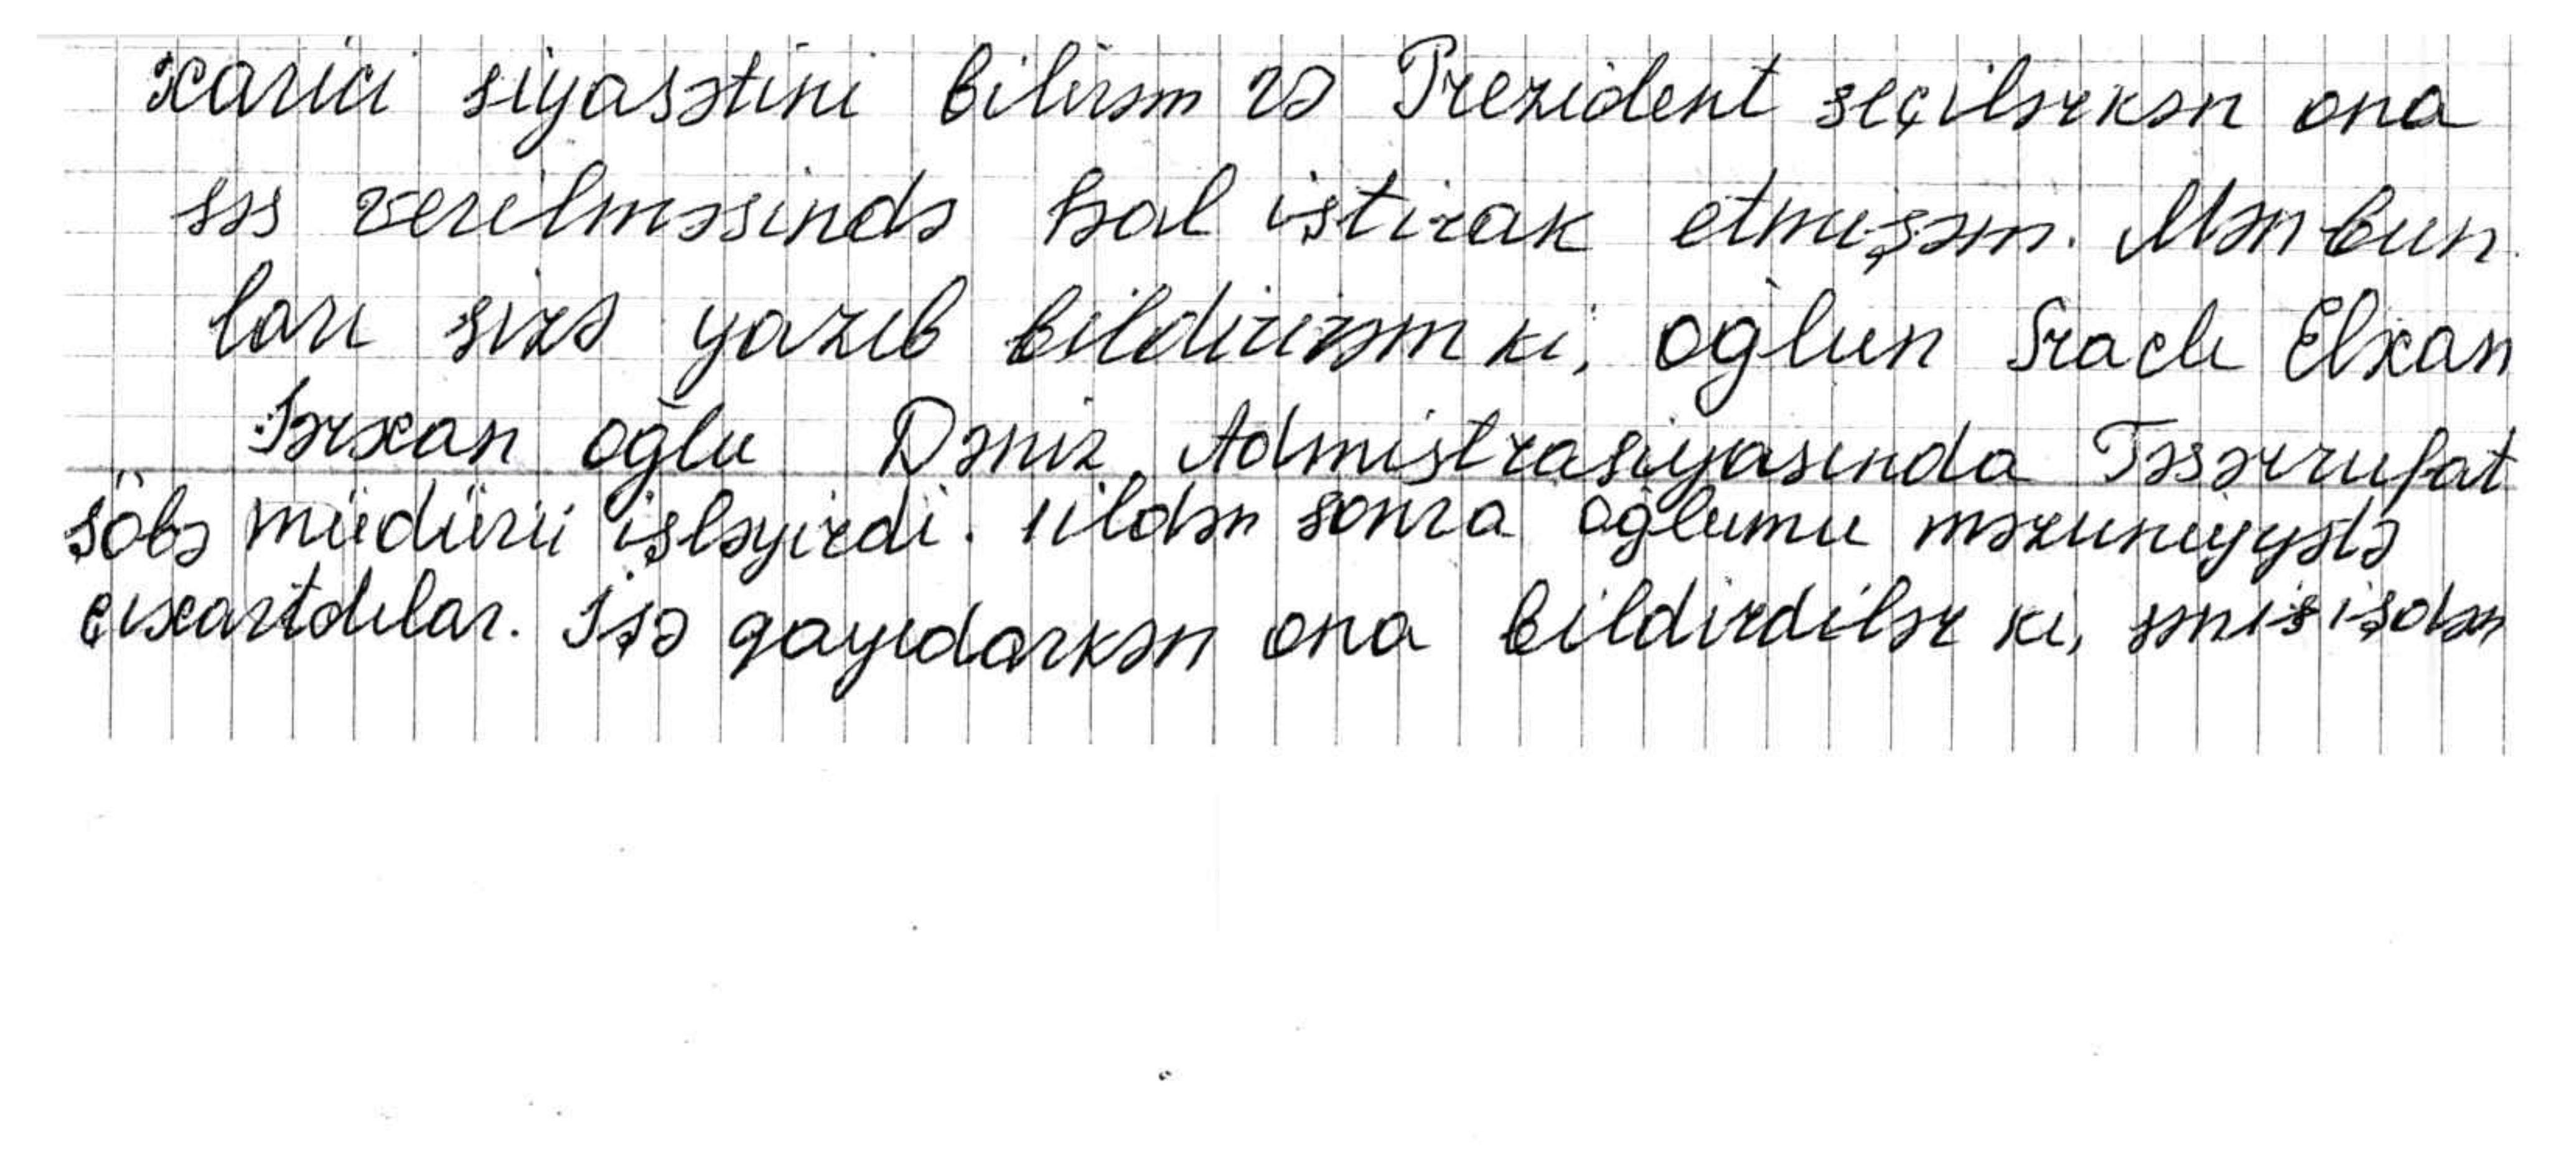 xarici siyasətini bilirəm və Prezident seçilərkən ona
səs verilməsində fəal iştirak etmişəm. Mən bun
ları sizə yazıb bildirirəm ki, oğlun Elxan
Tərxan oğlu Dəniz Admistrasiyasında Təsərrufat
şöbə müdürü işləyirdi. 11 ildən sonra oğlumu məzuniyyətə
çıxartdılar. İşə qayıdarkən ona bildirdilər ki, işdən